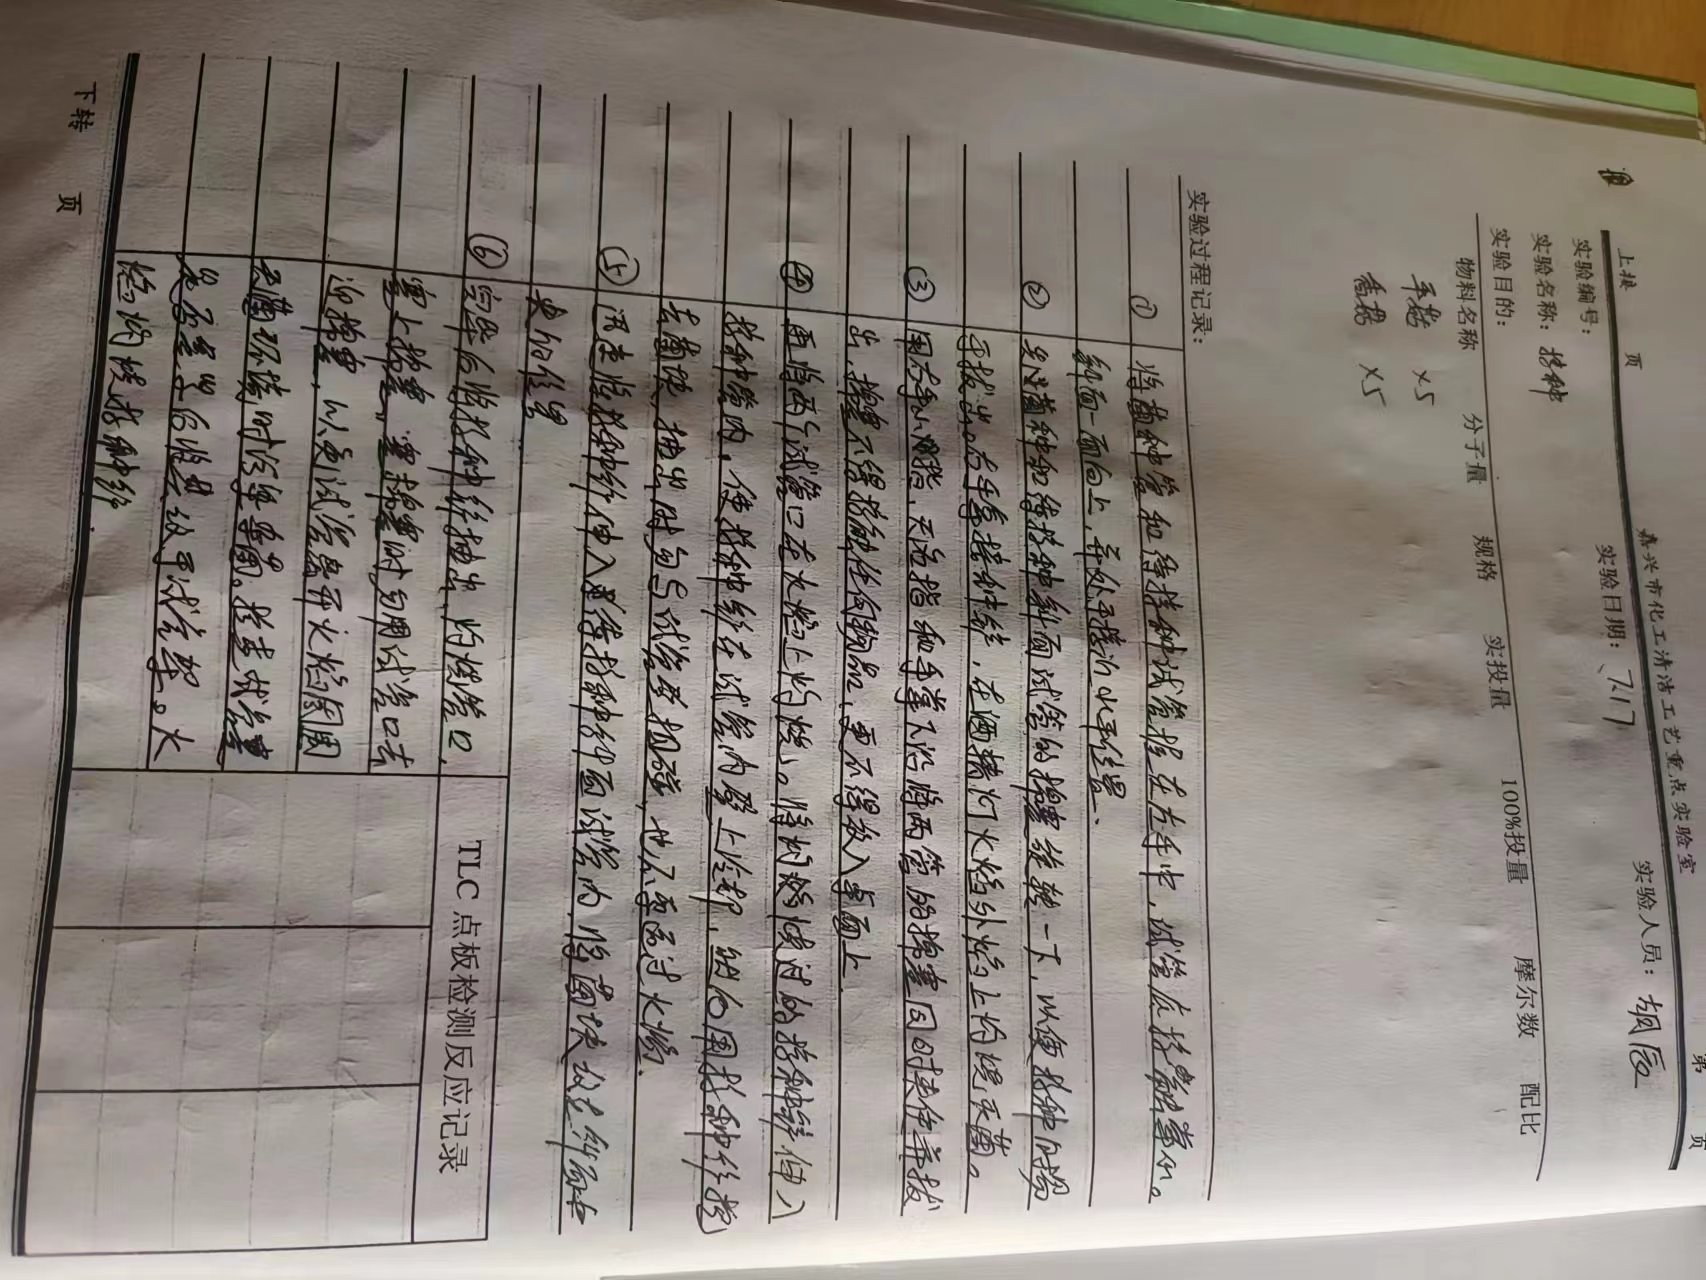 嘉兴市化工清洁工艺重点实验室 第 页
上接 页
实验编号: 实验日期: 7.17 实验人员: 胡辰
实验名称: 接种
实验目的:
物料名称 分子量 规格 实投量 100%投量 摩尔数 配比
平菇 ×5
香菇 ×5
实验过程记录:
① 将菌种管和待接种试管握在左手中,试管底接触掌心。
斜面一面向上,并处于接近水平位置、
② 先将菌种和待接种斜面试管的棉塞旋转一下,以便接种时易
于拔出。右手拿接种锌,在酒精灯火焰外焰上灼烧灭菌。
③ 用右手小拇指,无名指和手掌下沿将两管的棉塞同时夹住并拔
出,棉塞不得接触任何物品,更不得放入桌面上.
④ 再将两个试管口在火焰上灼烧。将灼烧过的接种锌伸入
菌种管内,使接种锌在试管内壁上冷却,细心用接种锌挖
去菌块,抽出时勿与试管壁相碰,也不要通过火焰.
⑤ 迅速将接种锌伸入待接种斜面试管内,将菌块放在斜面中
央的位置
⑥ 完毕后将接种锌抽出,灼烧管口,
塞上棉塞,塞棉塞时勿用试管口去
迎棉塞,以免试管离开火焰周围
无菌环境时污染杂菌。检查试管塞
是否塞牢后将其放于试管架。火
焰灼烧接种锌.
TLC 点板检测反应记录
下转 页